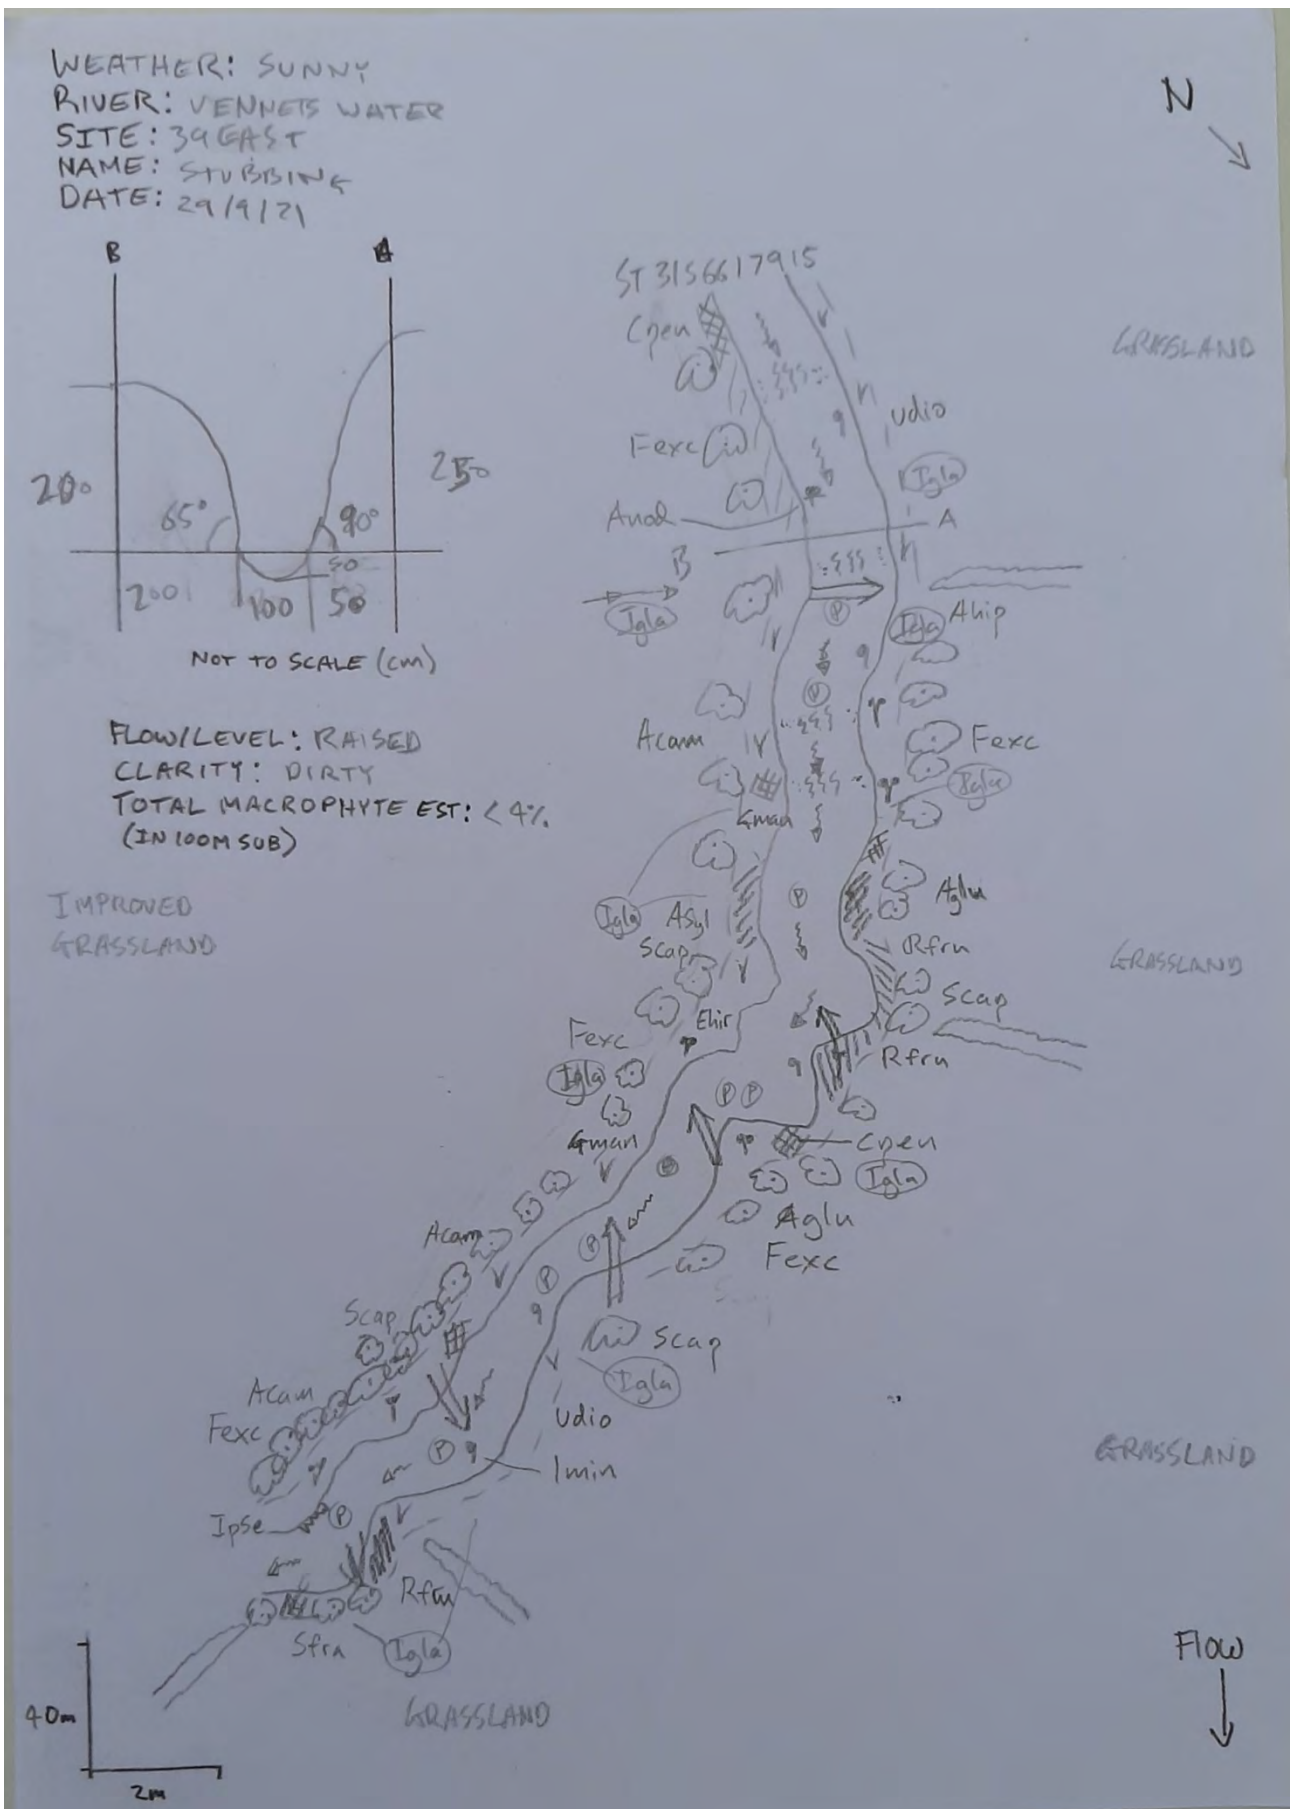 WEATHER: SUNNY
RIVER: VENNETS WATER
SITE: 39 EAST
NAME: STUBBING
DATE: 29/9/21
N
B
200
65°
90°
250
50
200
100
50
NOT TO SCALE (cm)
FLOW/LEVEL: RAISED
CLARITY: DIRTY
TOTAL MACROPHYTE EST: <4%
(IN 100M SUB)
IMPROVED
GRASSLAND
ST 31566 17915
Cpen
GRASSLAND
Udio
Fexc
Igla
Anod
A
B
Igla
P
Igla
Ahip
V
Acam
Fexc
Igla
Gman
P
Igla
Asyl
Aglu
Scap
Rfru
GRASSLAND
Scap
Ehir
Fexc
Rfru
Igla
P P
Gman
Cpen
Igla
Acam
P
Aglu
Fexc
P
Scap
Scap
Igla
Acam
Udio
Fexc
P
Imin
GRASSLAND
Ipse
P
Rfru
Sfra
Igla
GRASSLAND
40m
2m
Flow